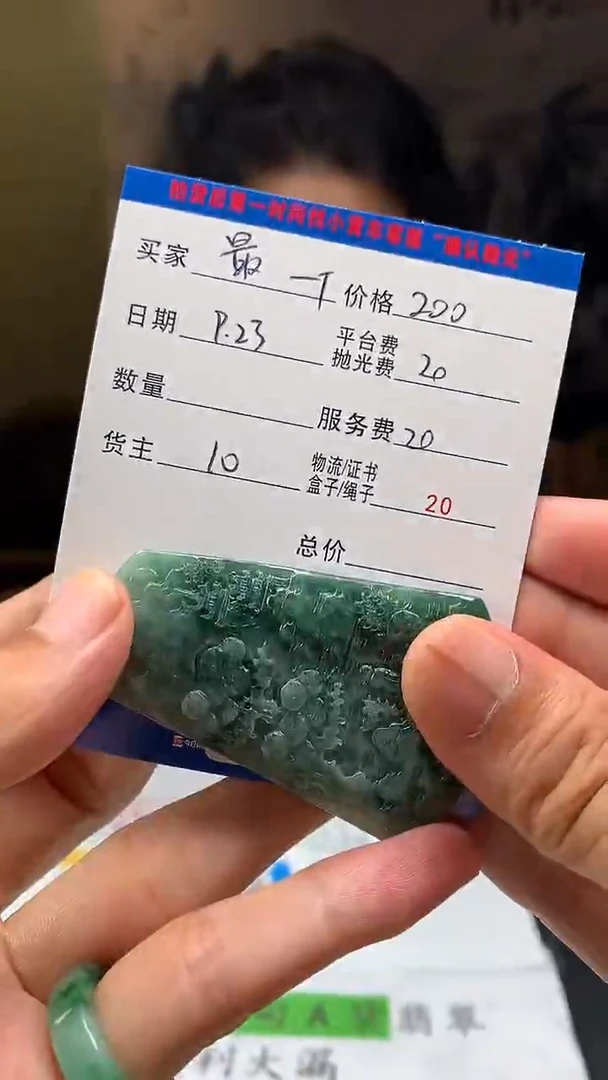 买家 最 一
价格 200
日期 8.23
平台费
抛光费 20
数量
服务费 20
货主 10
物流/证书
盒子/绳子 20
总价
A货翡翠
大漏